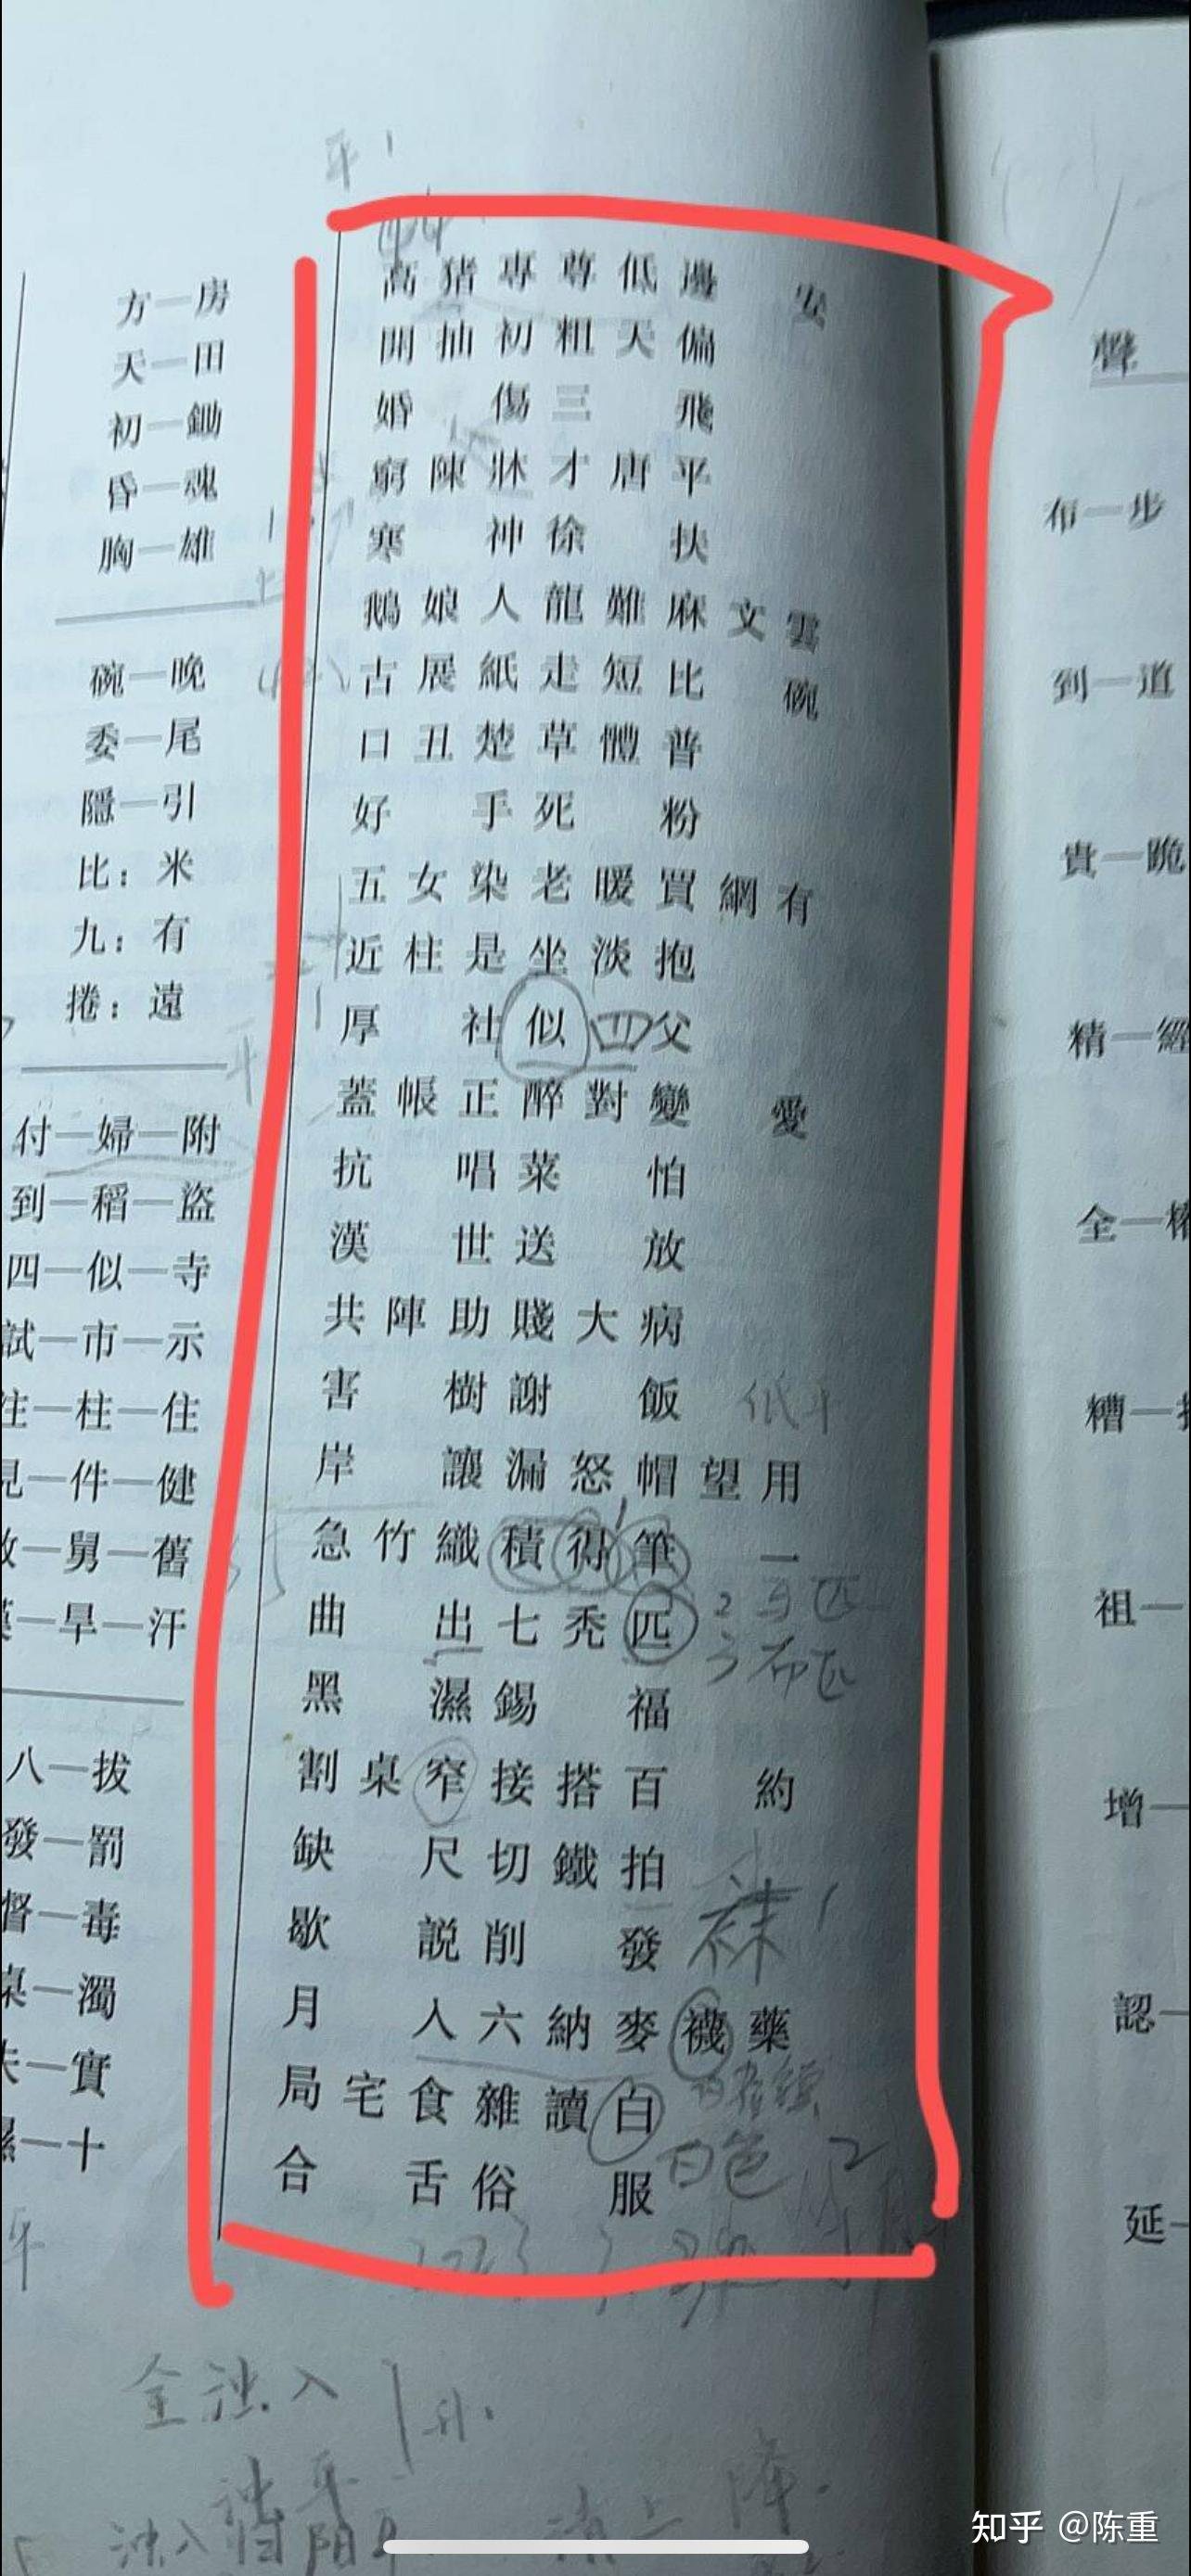 高 猪 專 尊 低 邊 安
開 抽 初 粗 天 偏
婚 傷 三 飛
窮 陳 牀 才 唐 平
寒 神 徐 扶
鵝 娘 人 龍 難 麻 文 雲
古 展 紙 走 短 比 碗
口 丑 楚 草 體 普
好 手 死 粉
五 女 染 老 暖 買 網 有
近 柱 是 坐 淡 抱
厚 社 似 四 父
蓋 帳 正 醉 對 變 愛
抗 唱 菜 怕
漢 世 送 放
共 陣 助 賤 大 病
害 樹 謝 飯 低平
岸 讓 漏 怒 帽 望 用
急 竹 織 積 得 筆 一
曲 出 七 禿 匹 2 马匹
3 布匹
黑 濕 錫 福
割 桌 窄 接 搭 百 約
缺 尺 切 鐵 拍
歇 説 削 發 袜
月 入 六 納 麥 襪 藥
局 宅 食 雜 讀 白
白色 2
合 舌 俗 服
方—房
天—田
初—鋤
昏—魂
胸—雄
碗—晚
委—尾
隱—引
比：米
九：有
捲：遠
付—婦—附
到—稻—盜
四—似—寺
試—市—示
注—柱—住
見—件—健
舅—舊
旱—汗
八—拔
發—罰
督—毒
桌—濁
實
濕—十
聲
布—步
到—道
貴—跪
精—經
全—
糟—
祖—
增—
認—
延—
全浊入
浊平
浊入归阳平
知乎 @陈重